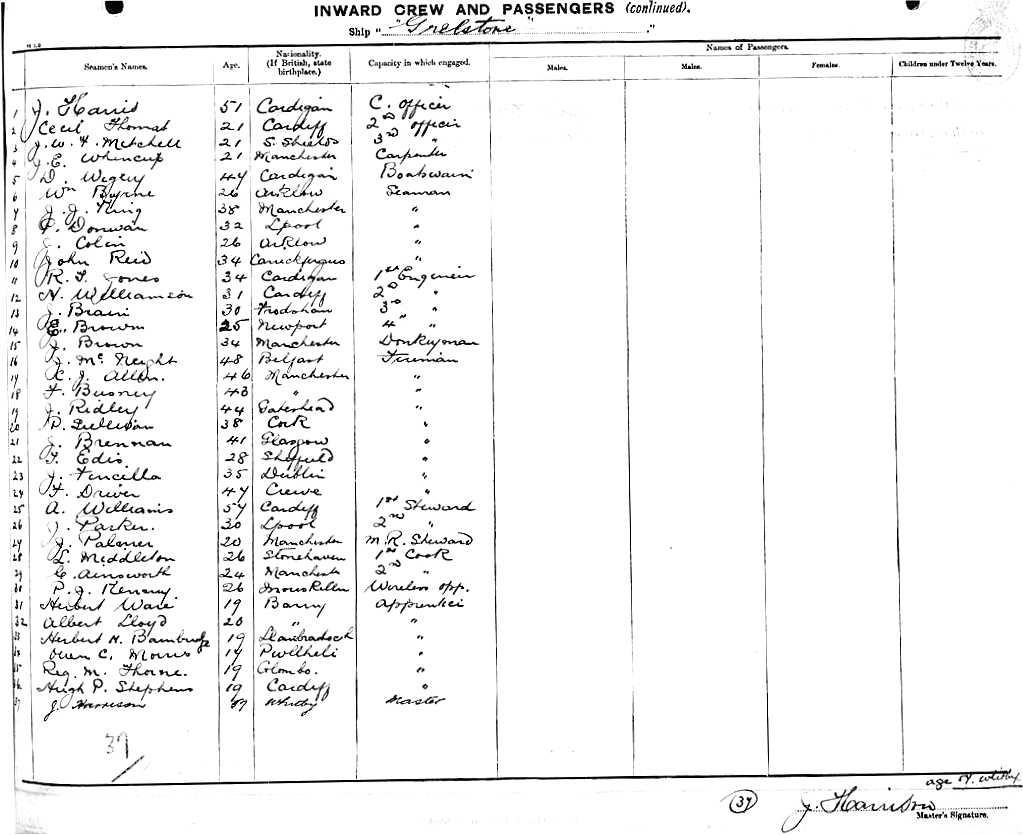 INWARD CREW AND PASSENGERS (continued).
Ship "Grelstone"
Seamen's Names. Age. Nationality. (If British, state birthplace.) Capacity in which engaged. Names of Passengers.
Males. Males. Females. Children under Twelve Years.
1 J. Harris 51 Cardigan C. Officer
2 Cecil Thomas 21 Cardiff 2nd Officer
3 J. W. Mitchell 21 S. Shields 3rd "
4 J. E. Whincup 21 Manchester Carpenter
5 D. 44 Cardigan Boatswain
6 Wm Byrne 26 Arklow Seaman
7 J. J. King 38 Manchester "
8 P. Donovan 32 Lpool "
9 J. Colin 26 Arklow "
10 John Reid 34 Carrickfergus "
11 R. T. Jones 34 Cardigan 1st Engineer
12 N. Williamson 31 Cardiff 2nd "
13 J. Brain 30 Frodsham 3rd "
14 E. Brown 25 Newport 4th "
15 J. Brown 34 Manchester Donkeyman
16 J. Mc Neight 48 Belfast Fireman
17 C. J. Allen. 46 Manchester "
18 F. Busney 43 " "
19 J. Ridley 44 Gateshead "
20 D. Sullivan 38 Cork "
21 J. Brennan 41 Glasgow "
22 T. Edis 28 Sheffield "
23 J. Fencilla 35 Dublin "
24 F. Driver 47 Crewe "
25 A. Williams 57 Cardiff 1st Steward
26 J. Parker. 30 Lpool 2nd "
27 J. Palmer 20 Manchester M. R. Steward
28 L. Middleton 26 Stonehaven 1st Cook
29 C. Ainsworth 24 Manchester 2nd "
30 P. J. Kenany 26 Inniskillen Wireless opp.
31 Herbert Ware 19 Barry Apprentice
32 Albert Lloyd 20 " "
33 Herbert N. Bambridge 19 Llanbradach "
34 Owen C. Morris 17 Pwllheli "
35 Reg. M. Thorne. 19 Colombo. "
36 Hugh P. Stephens 19 Cardiff "
37 J. Harrison Whitby Master
37
age Whitby
37 J. Harrison
Master's Signature.